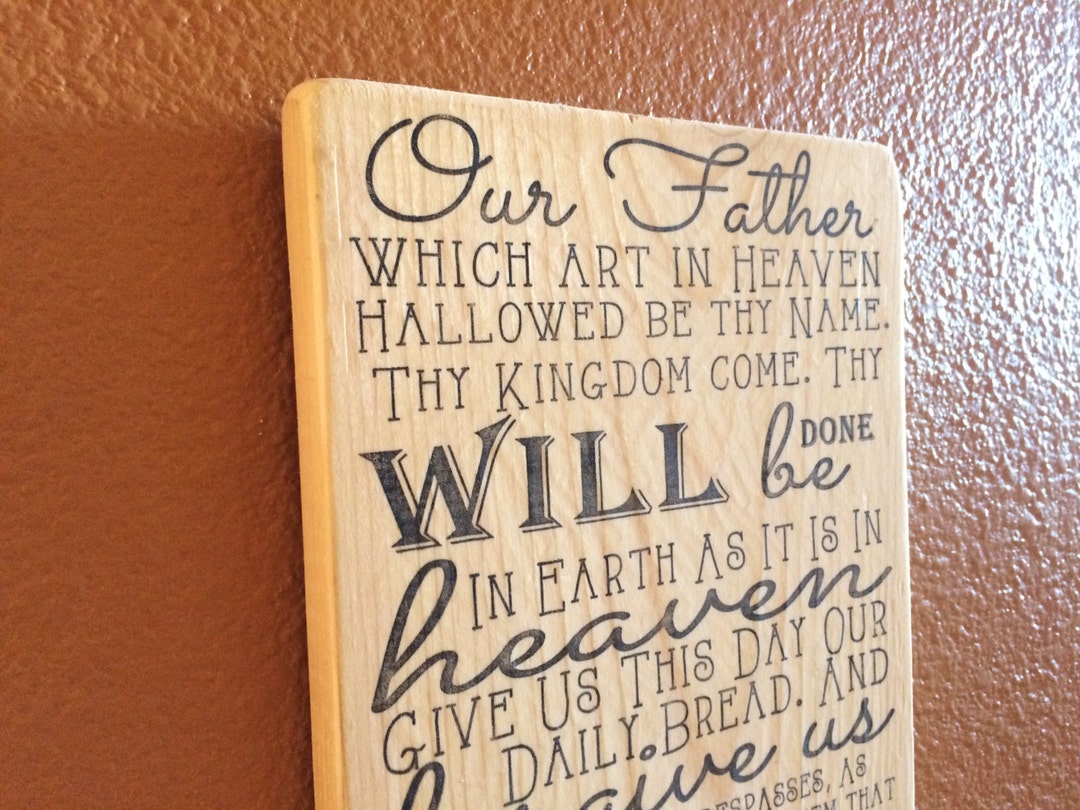 Our Father
WHICH ART IN HEAVEN
HALLOWED BE THY NAME.
THY KINGDOM COME. THY
WILL be DONE
IN EARTH AS IT IS IN
heaven
GIVE US THIS DAY OUR
DAILY BREAD. AND
us
AS
THAT